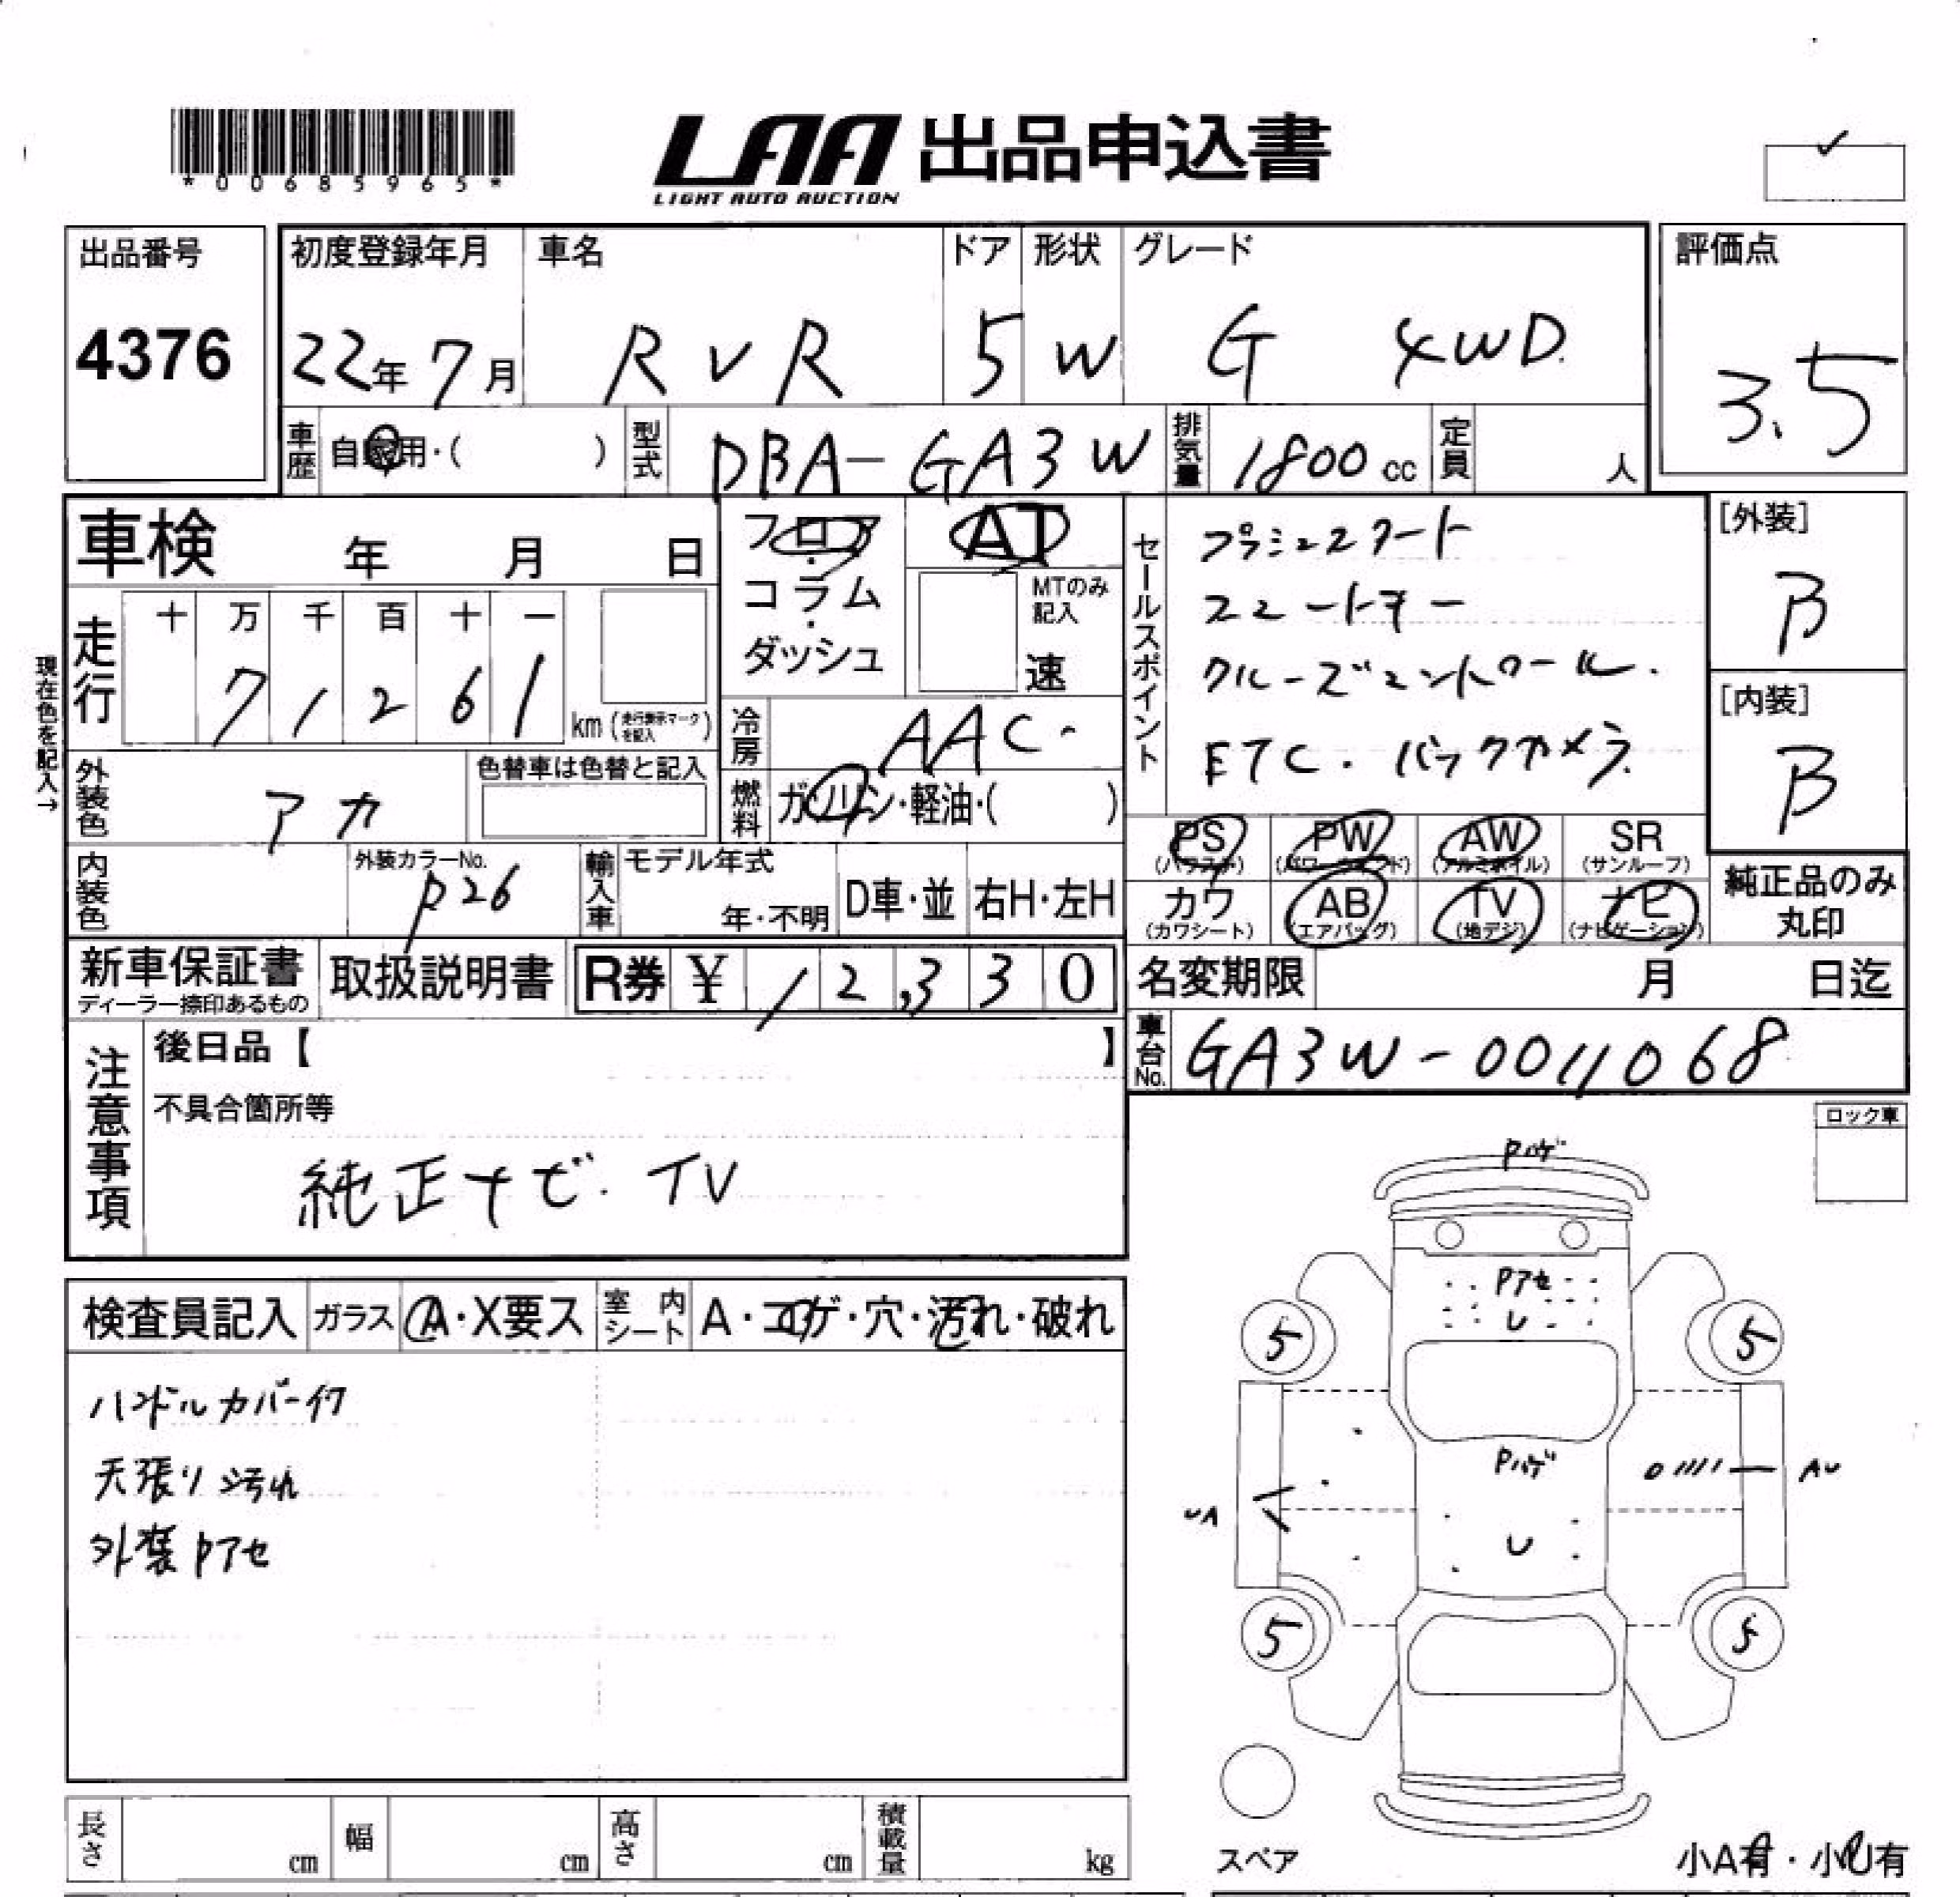 *00685965*
LAA 出品申込書
LIGHT AUTO AUCTION
✓
出品番号
4376
初度登録年月
22年 7月
車名
RVR
ドア
5
形状
W
グレード
G 4WD
評価点
3.5
車歴
自家用・( )
型式
DBA-GA3W
排気量
1800cc
定員
人
車検 年 月 日
現在色を記入→
走行
十 万 千 百 十 一
7 1 2 6 1
km (走行表示マークを記入)
フロア・
コラム・
ダッシュ
AT
MTのみ記入
速
冷房
AAC
燃料
ガソリン・軽油・( )
外装色
アカ
色替車は色替と記入
内装色
外装カラーNo.
P26
輸入車
モデル年式
年・不明
D車・並
右H・左H
セールスポイント
プッシュスタート
スマートキー
クルーズコントロール
ETC. バックカメラ
[外装]
B
[内装]
B
PS
(パワステ)
PW
(パワーウィンド)
AW
(アルミホイル)
SR
(サンルーフ)
カワ
(カワシート)
AB
(エアバッグ)
TV
(地デジ)
ナビ
(ナビゲーション)
純正品のみ
丸印
新車保証書
ディーラー捺印あるもの
取扱説明書
R券 ¥ 12,330
名変期限 月 日迄
車台No.
GA3W-0011068
注意事項
後日品【 】
不具合箇所等
純正ナビ. TV
ロック車
検査員記入
ガラス
A・X要ス
室内シート
A・コゲ・穴・汚れ・破れ
ハンドルカバー付
天張り汚れ
外装Pアセ
Pハゲ
Pアセ
U
5
5
Pハゲ
AU
UA
U
5
5
スペア
小A有・小U有
長さ cm
幅 cm
高さ cm
積載量 kg